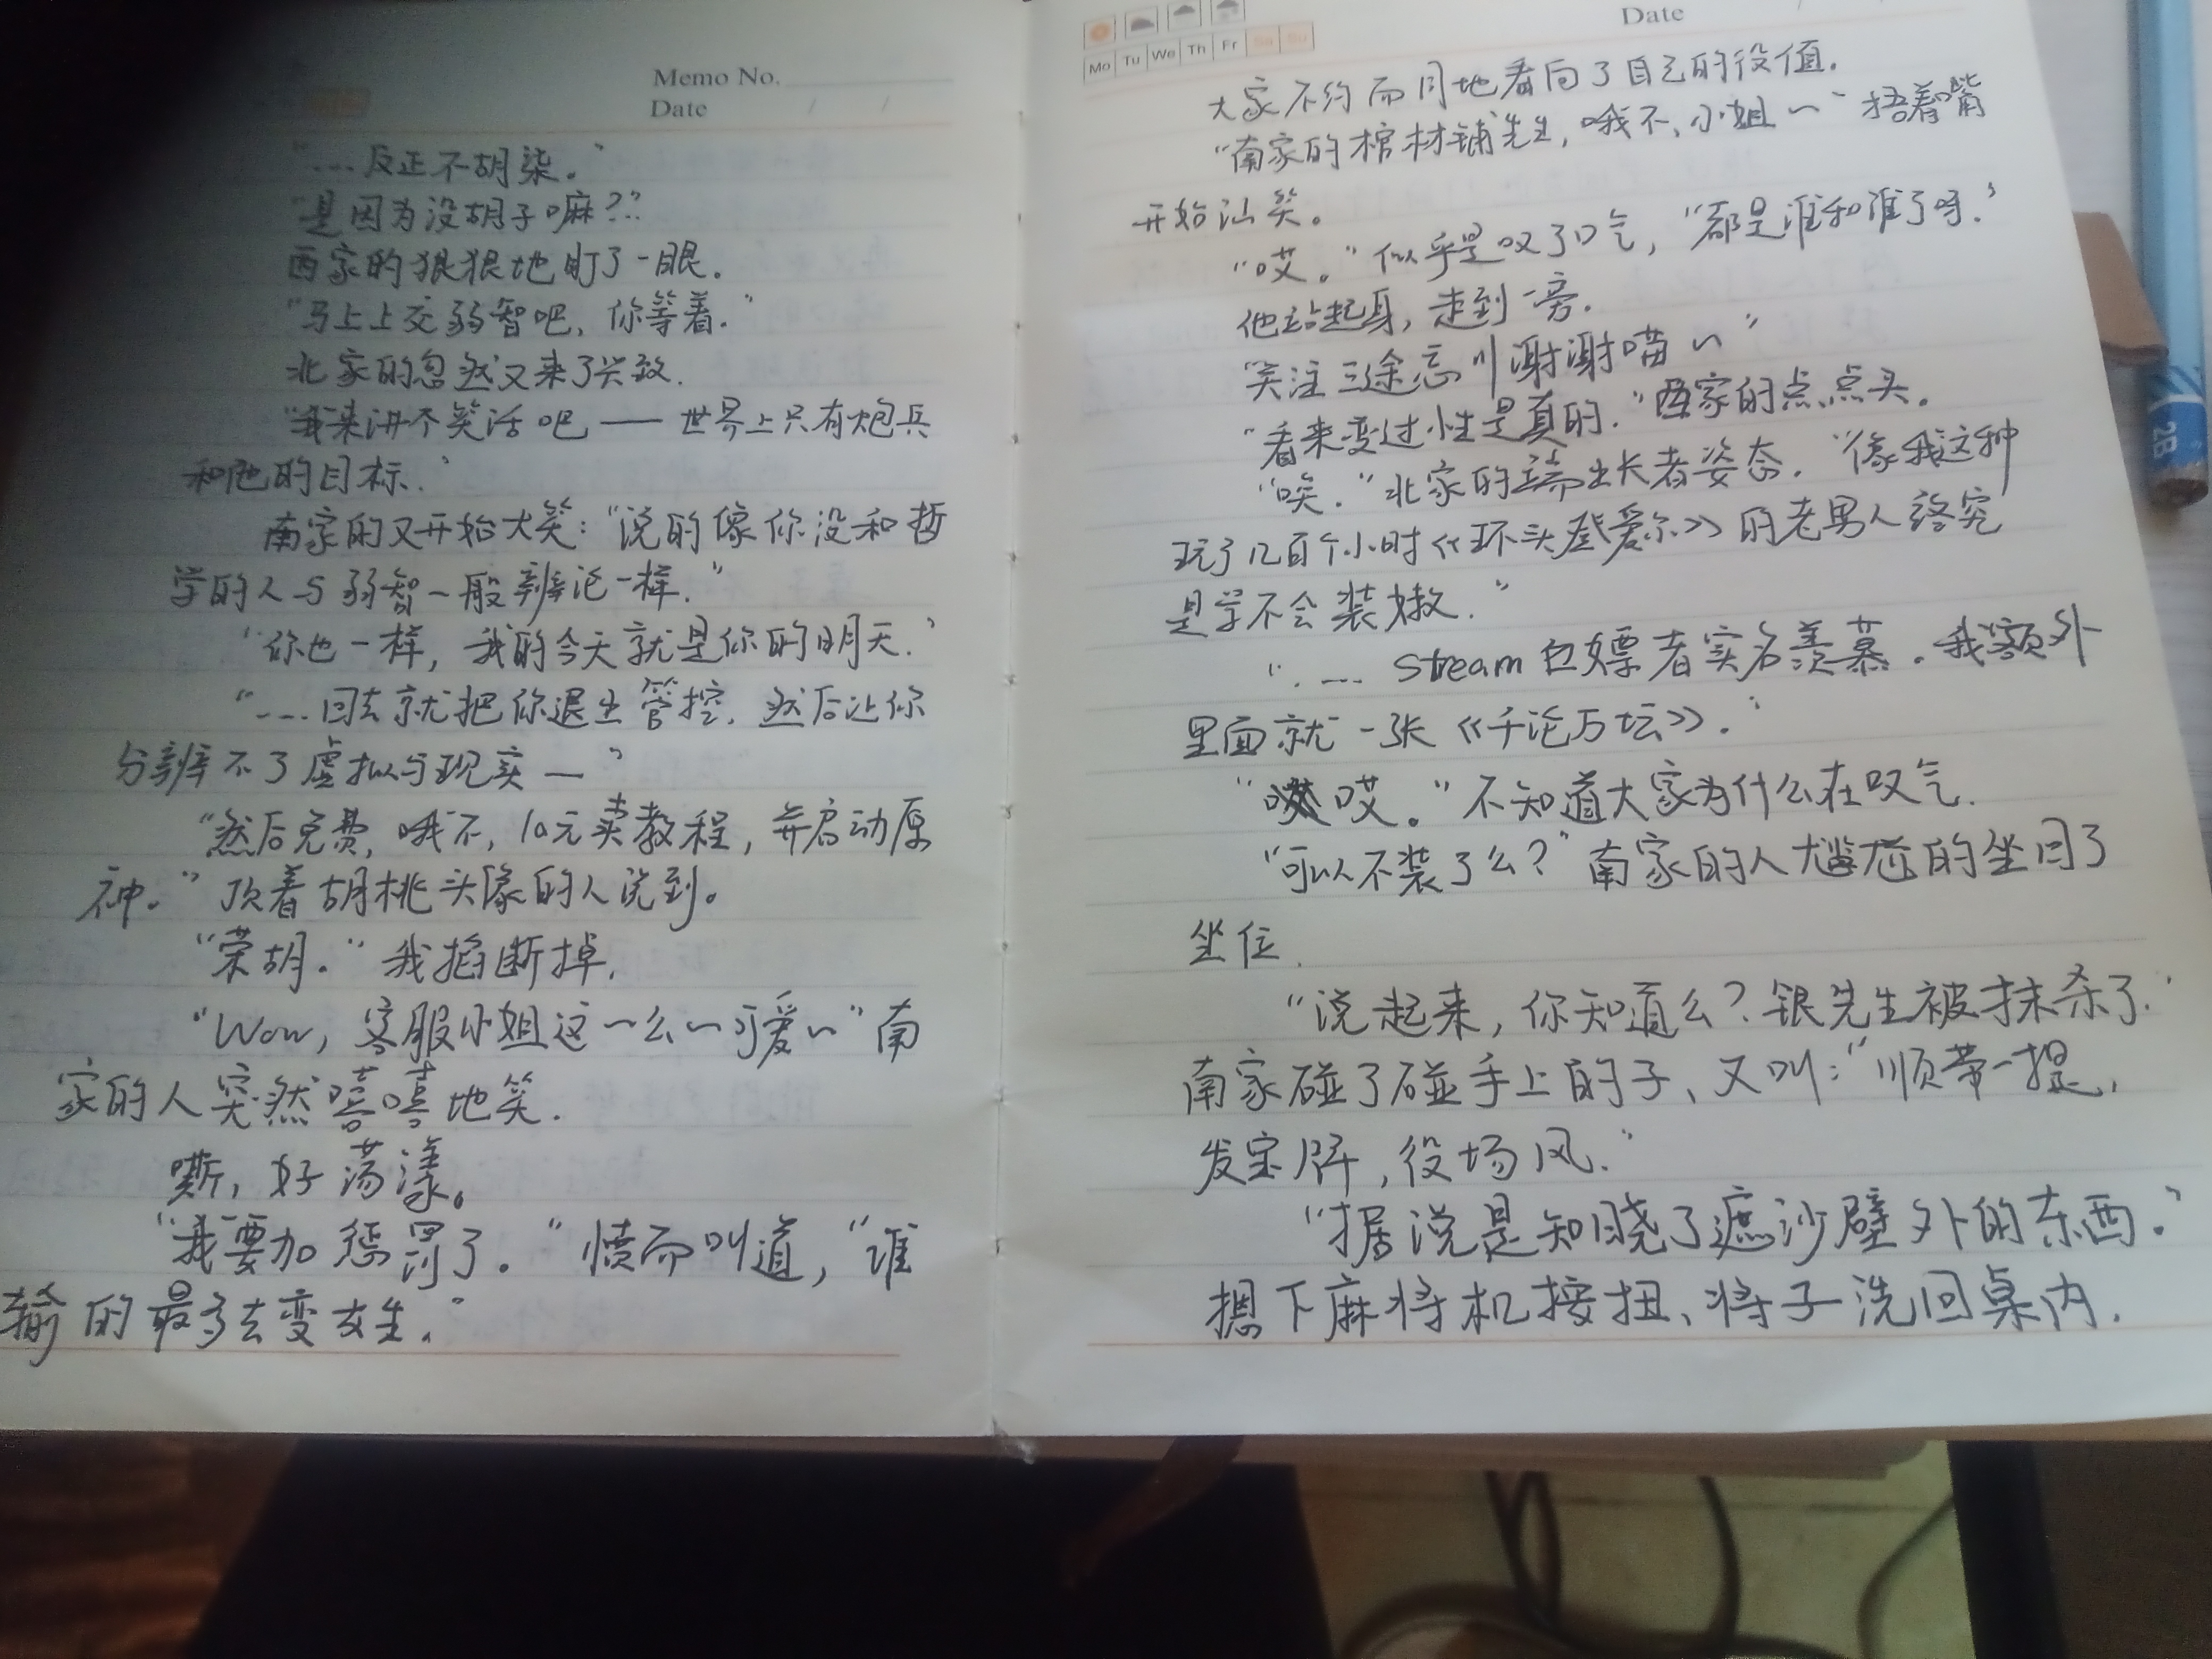 Memo No.
Date / /
“…反正不胡柒。”
“是因为没胡子嘛？”
西家的狠狠地盯了一眼.
“马上上交弱智吧, 你等着.”
北家的忽然又来了兴致.
“我来讲个笑话吧——世界上只有炮兵
和他的目标.”
南家的又开始大笑：“说的像你没和哲
学的人与弱智一般辨论一样.”
“你也一样, 我的今天就是你的明天.”
“…回去就把你退出管控, 然后让你
分辨不了虚拟与现实—”
“然后免费, 哦不, 10元卖教程, 并启动原
神。”顶着胡桃头像的人说到。
“荣胡.”我掐断掉.
“Wow, 客服小姐这~么~可爱~”南
家的人突然嘻嘻地笑.
嘶, 好荡漾。
“我要加惩罚了.”愤而叫道, “谁
输的最多去变女生.”
Date /
Mo Tu We Th Fr Sa Su
大家不约而同地看向了自己的役值.
“南家的棺材铺先生, 哦不, 小姐~”捂着嘴
开始讪笑。
“哎。”似乎是叹了口气, “都是谁和谁了呀.”
他站起身, 走到一旁.
关注三途忘川谢谢喵~”
“看来变过性是真的.”西家的点点头.
“唉.”北家的端出长者姿态. “像我这种
玩了几百个小时《环头登爱尔》的老男人终究
是学不会装嫩.”
“.… Stream白嫖者实名羡慕. 我额外
里面就一张《千论万坛》.”
“哎。”不知道大家为什么在叹气.
“可以不装了么？”南家的人尴尬的坐回了
坐位.
“说起来, 你知道么？银先生被抹杀了.”
南家碰了碰手上的子、又叫：“顺带一提,
发宝牌, 役场风.”
“据说是知晓了遮沙壁外的东西.”
摁下麻将机按扭、将子洗回桌内.
2B